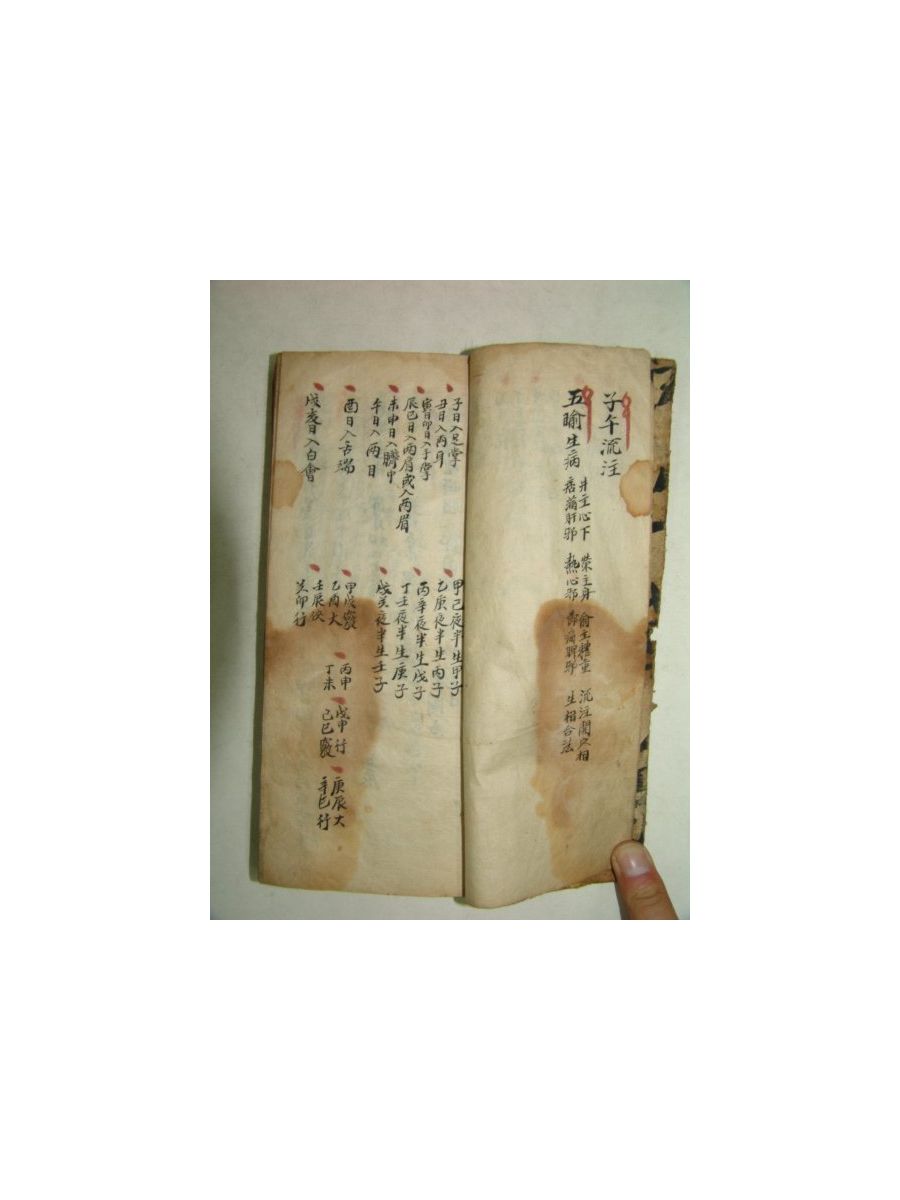 子午流注
五腧生病
井主心下
痞滿肝邪
榮主身
熱心邪
俞主體重
節痛脾邪
流注開穴相
生相合法
子日入足掌
丑日入兩耳
寅日卯日入手掌
辰巳日入兩肩或入兩眉
未申日入臍中
午日入兩目
酉日入舌端
戌亥日入白會
甲己夜半生甲子
乙庚夜半生丙子
丙辛夜半生戊子
丁壬夜半生庚子
戊癸夜半生壬子
甲戌
乙酉大
壬辰
癸卯行
丙申
丁未
戊申行
己巳
庚辰大
辛巳行